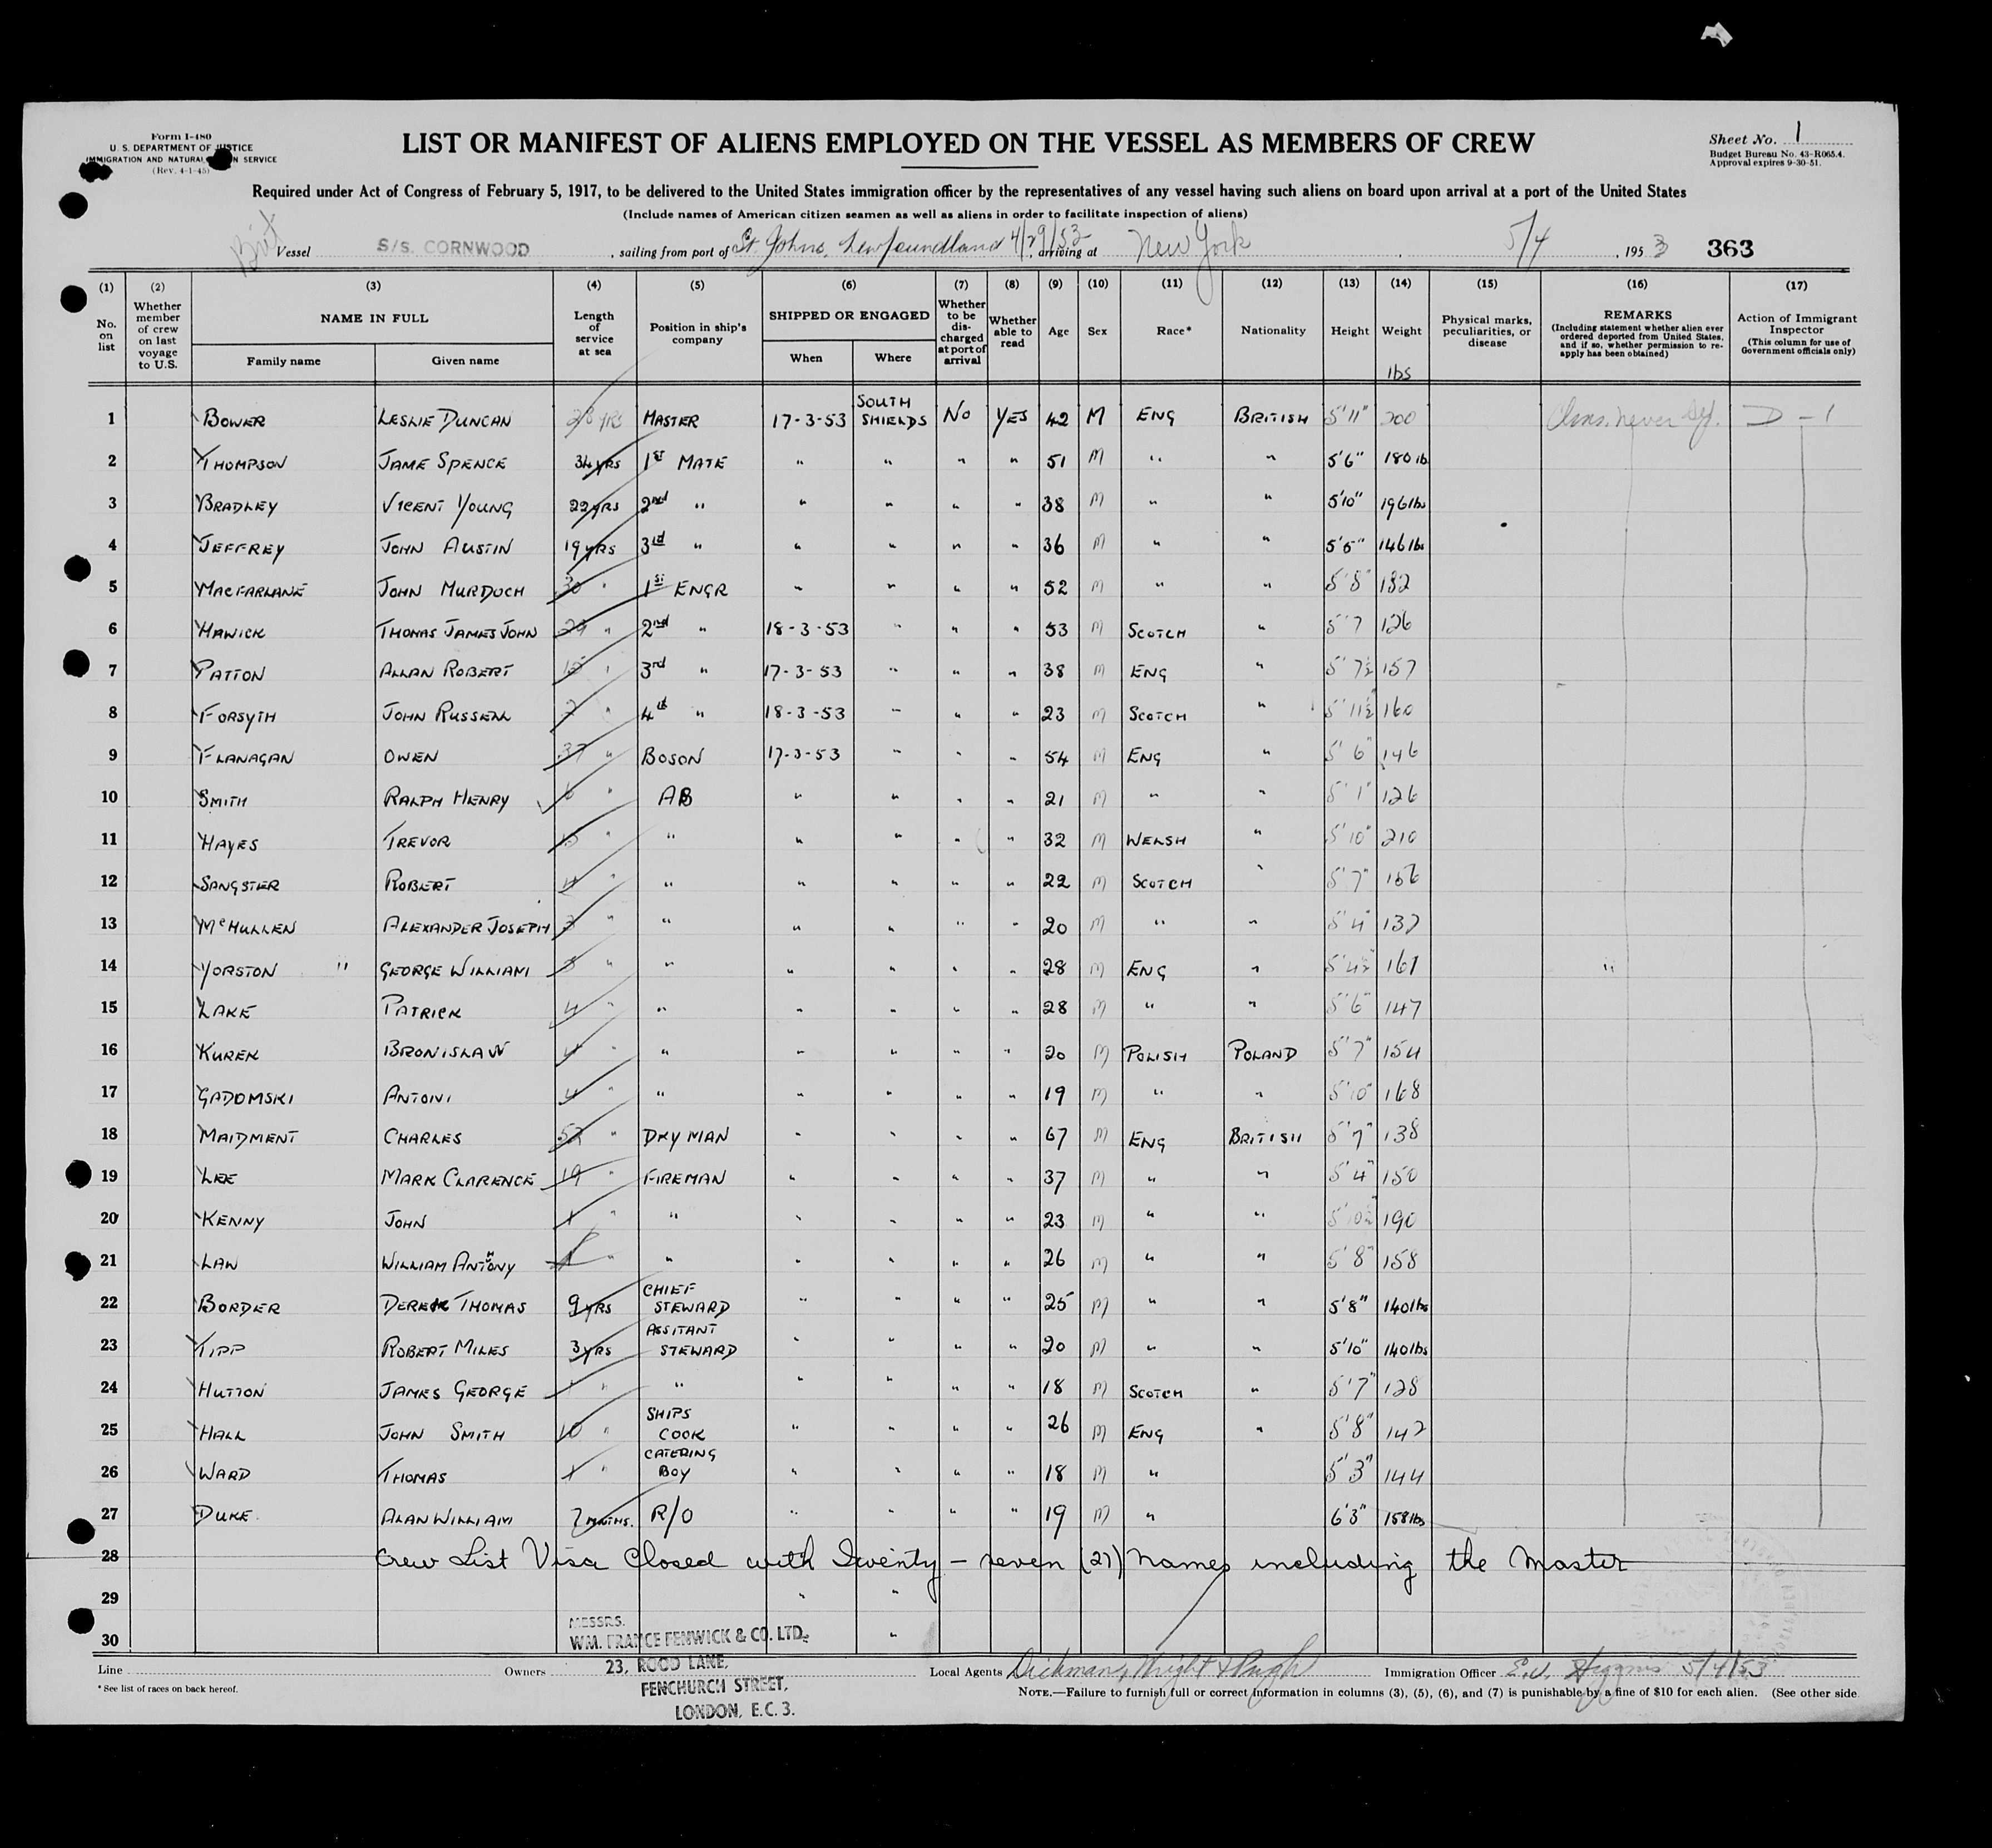 Form I-480
U. S. DEPARTMENT OF JUSTICE
IMMIGRATION AND NATURALIZATION SERVICE
(Rev. 4-1-45)
LIST OR MANIFEST OF ALIENS EMPLOYED ON THE VESSEL AS MEMBERS OF CREW
Sheet No. 1
Budget Bureau No. 43-R065.4.
Approval expires 9-30-51.
Required under Act of Congress of February 5, 1917, to be delivered to the United States immigration officer by the representatives of any vessel having such aliens on board upon arrival at a port of the United States
(Include names of American citizen seamen as well as aliens in order to facilitate inspection of aliens)
Brit Vessel S/S. CORNWOOD, sailing from port of St Johns, Newfoundland 4/29/53, arriving at New York, 5/4, 1953 363
(1) (2) (3) (4) (5) (6) (7) (8) (9) (10) (11) (12) (13) (14) (15) (16) (17)
No. on list
Whether member of crew on last voyage to U.S.
NAME IN FULL
Family name Given name
Length of service at sea
Position in ship's company
SHIPPED OR ENGAGED
When Where
Whether to be discharged at port of arrival
Whether able to read
Age Sex Race* Nationality Height Weight
lbs
Physical marks, peculiarities, or disease
REMARKS
(Including statement whether alien ever ordered deported from United States, and if so, whether permission to re-apply has been obtained)
Action of Immigrant Inspector
(This column for use of Government officials only)
1 BOWER LESLIE DUNCAN 28 YRS MASTER 17-3-53 SOUTH SHIELDS NO YES 42 M ENG BRITISH 5'11" 200 D - 1
2 THOMPSON JAME SPENCE 34 YRS 1ST MATE " " " " 51 M " " 5'6" 180 lb
3 BRADLEY VICENT YOUNG 22 YRS 2nd " " " " " 38 M " " 5'10" 196 lbs
4 JEFFREY JOHN AUSTIN 19 YRS 3rd " " " " " 36 M " " 5'5" 146 lbs
5 MACFARLANE JOHN MURDOCH 30 " 1ST ENGR " " " " 52 M " " 5'8" 132
6 HAWICK THOMAS JAMES JOHN 29 " 2nd " 18-3-53 " " " 53 M SCOTCH " 5'7 126
7 PATTON ALLAN ROBERT 15 " 3rd " 17-3-53 " " " 38 M ENG " 5'7½ 157
8 FORSYTH JOHN RUSSELL 2 " 4th " 18-3-53 " " " 23 M SCOTCH " 5'11½ 160
9 FLANAGAN OWEN 37 " BOSON 17-3-53 " " 54 M ENG " 5'6" 146
10 SMITH RALPH HENRY 6 " AB " " " " 21 M " " 5'1" 126
11 HAYES TREVOR 15 " " " " " " 32 M WELSH " 5'10" 210
12 SANGSTER ROBERT 4 " " " " " " 22 M SCOTCH " 5'7" 156
13 McMULLEN ALEXANDER JOSEPH 3 " " " " " " 20 M " " 5'4" 137
14 YORSTON " GEORGE WILLIAM 5 " " " " " " 28 M ENG " 5'4½ 161 "
15 LAKE PATRICK 4 " " " " " " 28 M " " 5'6" 147
16 KUREK BRONISLAW 4 " " " " " " 20 M POLISH POLAND 5'7" 154
17 GADOMSKI ANTONI 4 " " " " " " 19 M " " 5'10" 168
18 MAIDMENT CHARLES 52 " DKYMAN " " " " 67 M ENG BRITISH 5'7" 138
19 LEE MARK CLARENCE 19 " FIREMAN " " " " 37 M " " 5'4" 150
20 KENNY JOHN 1 " " " " " " 23 M " " 5'10½ 190
21 LAW WILLIAM ANTHONY " " " " " " 26 M " " 5'8" 158
22 BORDER DEREK THOMAS 9 YRS CHIEF STEWARD " " " " 25 M " " 5'8" 140 lbs
23 TIPP ROBERT MILES 3 YRS ASSITANT STEWARD " " " " 20 M " " 5'10" 140 lbs
24 HUTTON JAMES GEORGE " " " " " " 18 M SCOTCH " 5'7" 128
25 HALL JOHN SMITH 10 " SHIPS COOK " " " " 26 M ENG " 5'8" 142
26 WARD THOMAS 1 " CATERING BOY " " " " 18 M " 5'3" 144
27 DUKE ALAN WILLIAM 7 MNTHS. R/O " " " " 19 M " 6'3" 158 lbs
28 Crew List Visa Closed with Twenty - seven (27) names including the Master
29 " "
30 "
Line
Owners MESSRS.
WM. FRANCE FENWICK & CO. LTD.
23, ROOD LANE,
FENCHURCH STREET,
LONDON, E.C. 3.
Local Agents Dickmann, Wright & Pugh
Immigration Officer E.W. Higgins 5/4/53
* See list of races on back hereof.
NOTE.—Failure to furnish full or correct information in columns (3), (5), (6), and (7) is punishable by a fine of $10 for each alien. (See other side